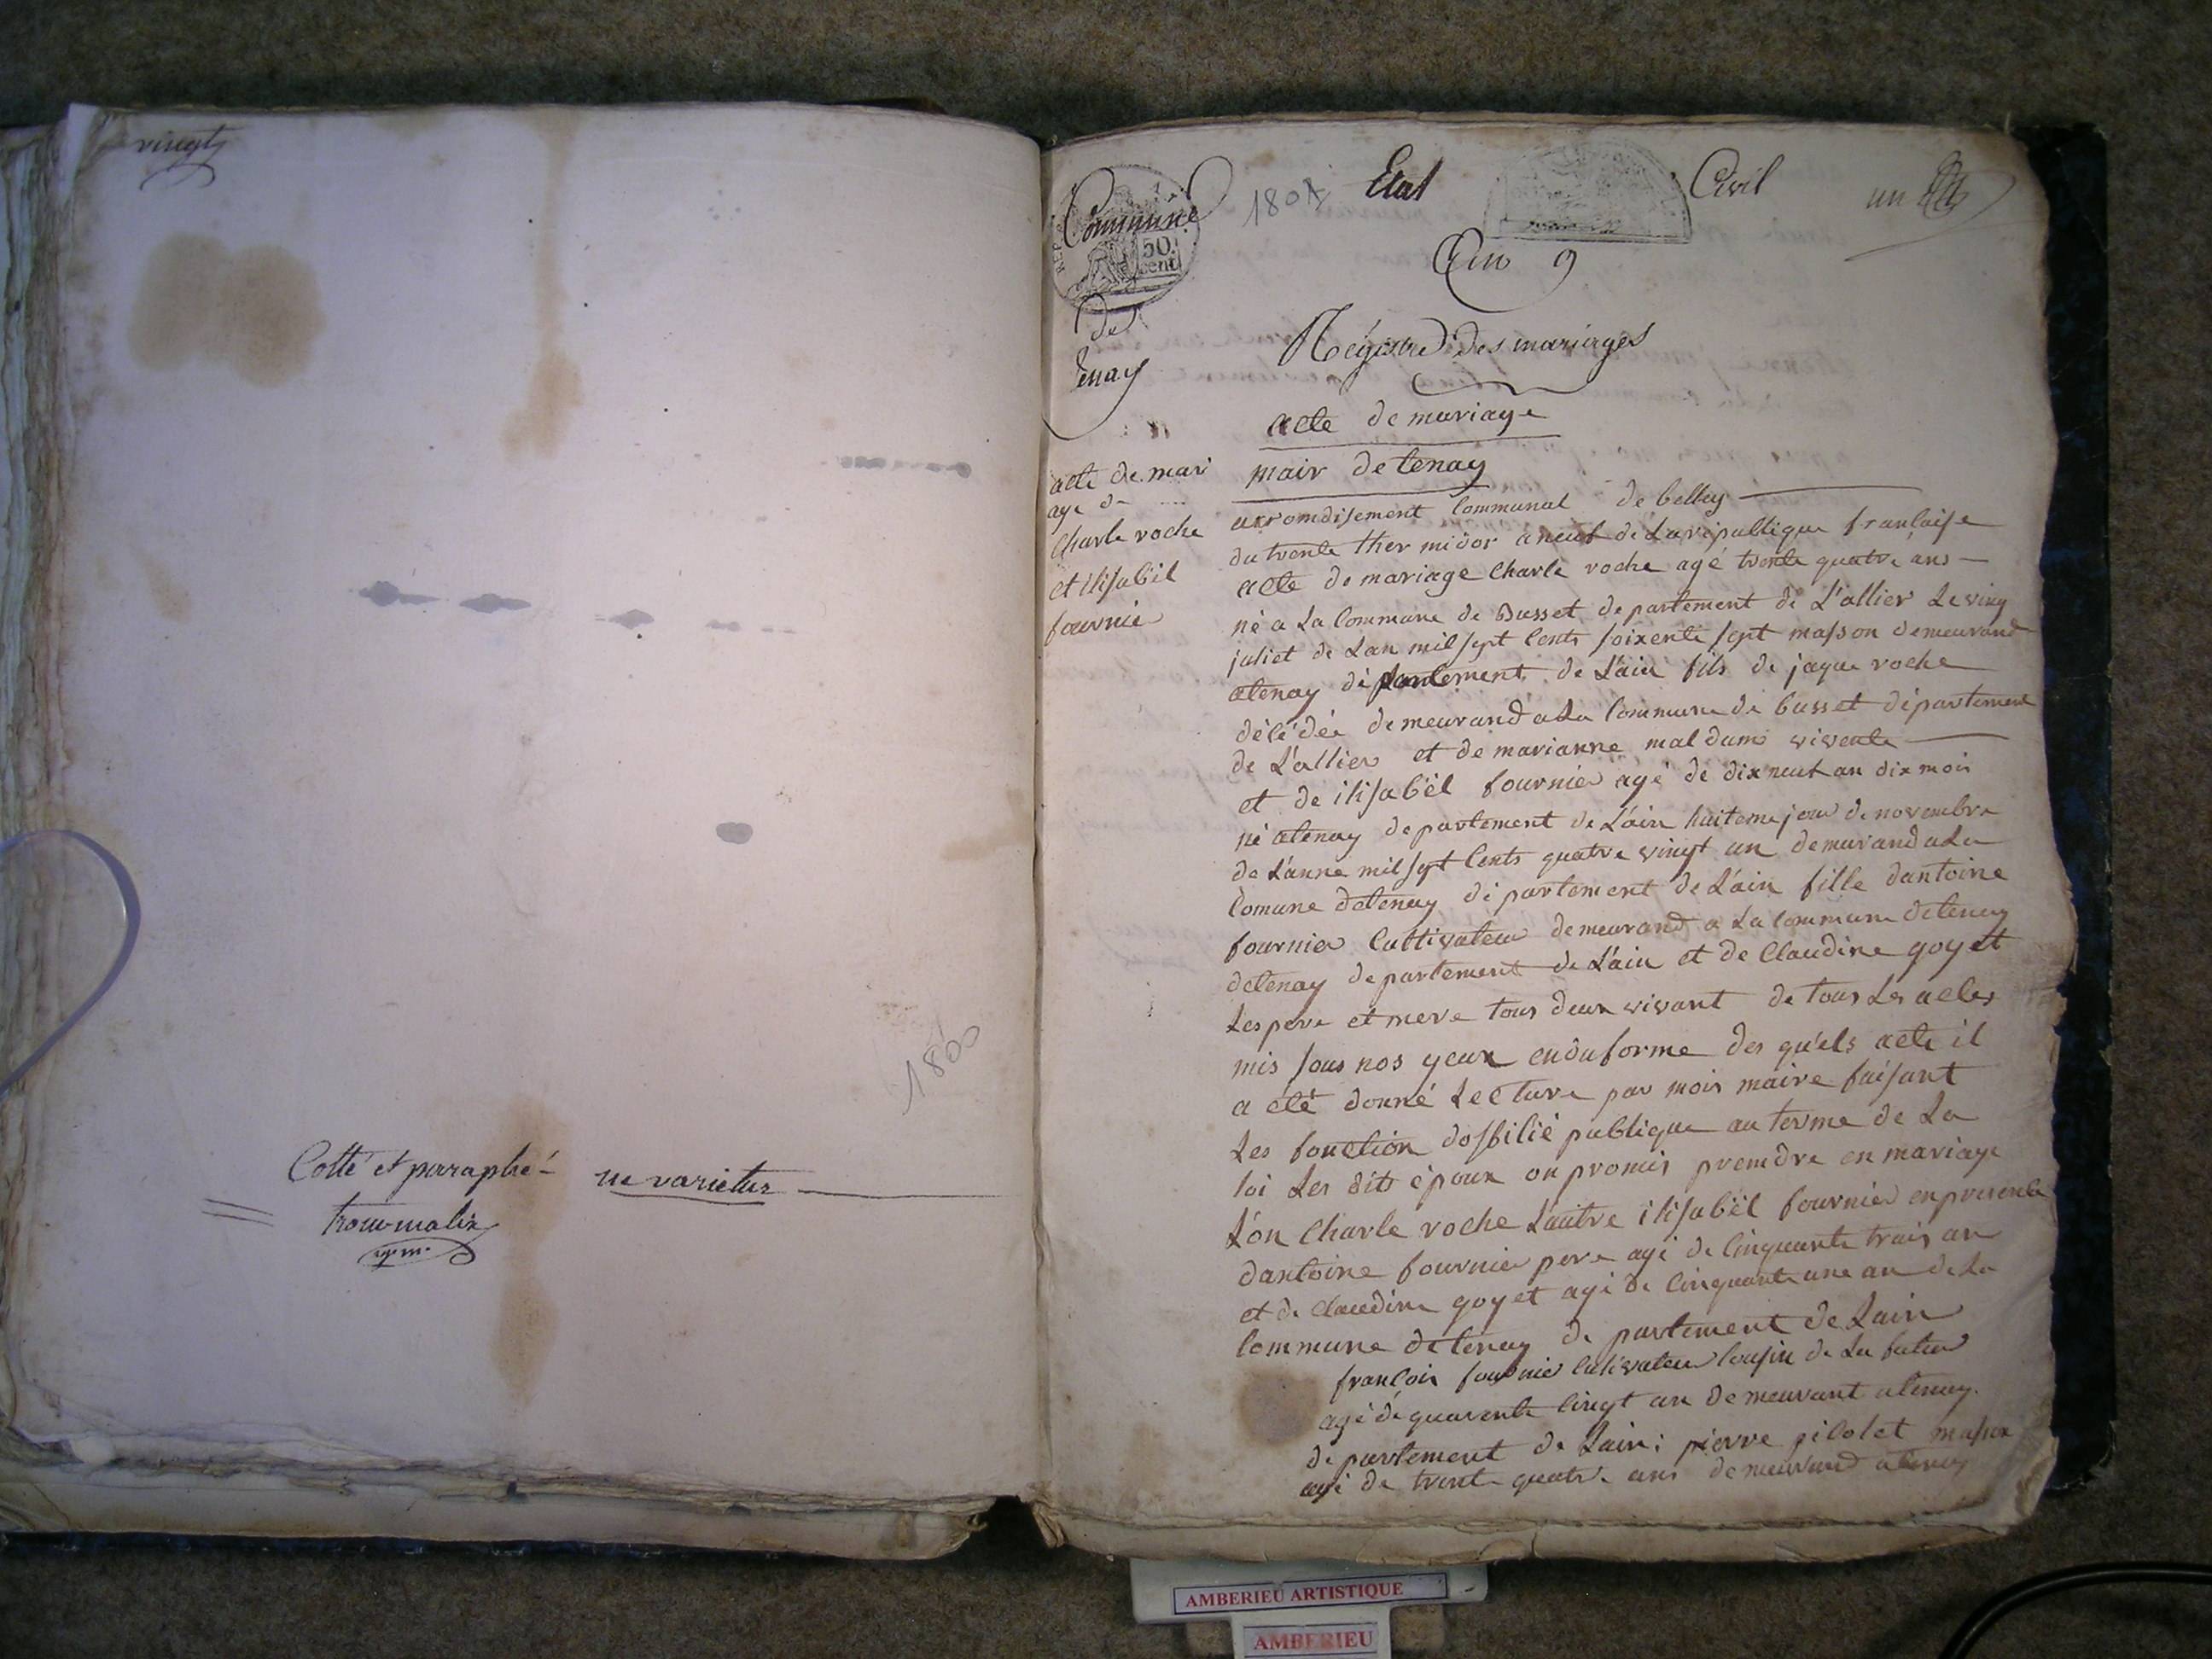 vingt
1800
Cotté et paraphé ne varietur
Commune
50.
cent
de
Tenay
1801
Etat
Civil
un
An 9
Régistre des mariages
acte de mariage
acte de mari
age de
Charle roche
et ilisabêil
fournie
mair de tenay
arromdisement Communal de belley
du trente ther midor a neuf de La republique francaise
acte de mariage Charle roche agé trente quatre ans
né a La Commune de Busset departement de L'allier Le ving
juliet de Lan mil sept Cents soixente sept masson demeurand
atenay département de L'ain fils de jaque roche
décédée demeurand a La Commune de busset département
de L'allier et de marianne mal dume vivente
et de ilisabêil fournier agé de dix neuf an dix mois
né atenay departement de L'ain huiteme jour de novembre
de L'anne mil sept Cents quatre vingt un demurand a La
Comune detenay département de L'ain fille dantoine
fournier Cultivateur demeurand a La Commune detenay
detenay departement de L'ain et de Claudine goyet
Les pere et mere tous deux vivant de tous Les actes
mis sous nos yeux en du forme des qu'els acte il
a été donné Lecture par mois maire faisant
Les fonction dofficié publique au terme de La
loi Les dits époux on promis premdre en mariage
L'on Charle roche L'autre ilisabêil fournier en presente
dantoine fournier pere agé de Cinquante trois an
et de Claudine goyet agé de Cinquante une an de La
Commune detenay de partement de Lain
francois fournie Cultivateur Cousin de La futur
agé de quarente Cingt an demeurant atenay.
departement de Lain : pierre pilolet masson
agé de trente quatre ans demeurand atenay
AMBERIEU ARTISTIQUE
AMBERIEU